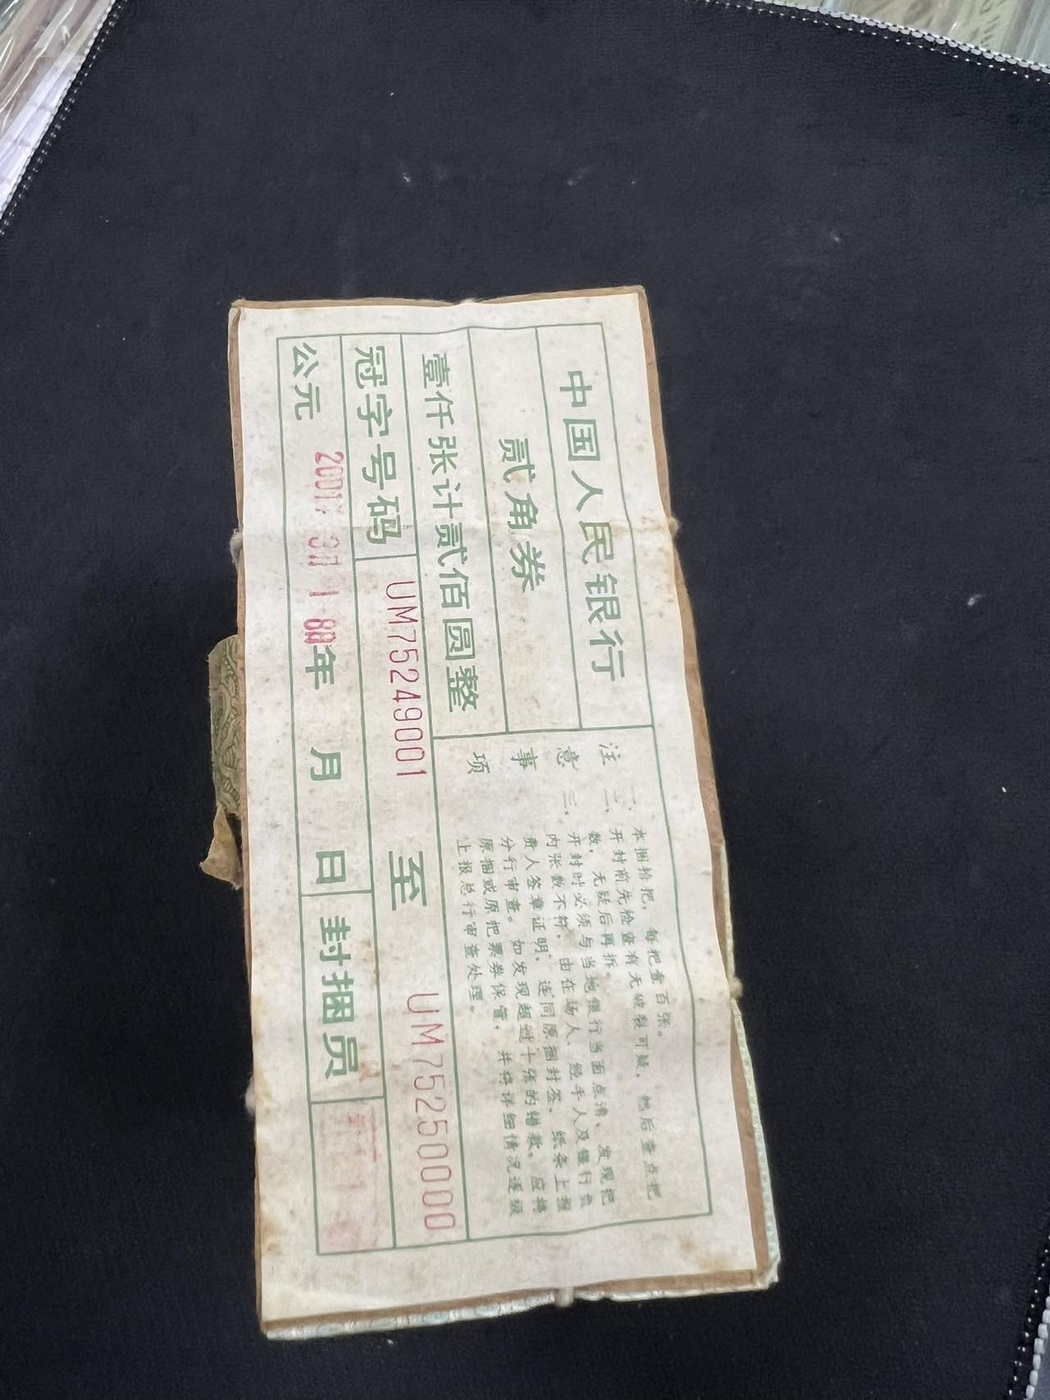 中国人民银行
贰角券
壹仟张计贰佰圆整
冠字号码 UM75249001 至 UM75250000
公元 2001 年 月 日 封捆员
注意事项
一、本捆拾把，每把壹百张。
二、开封前先检查有无破裂可疑，然后查点把
数，无疑后再拆。
三、开封时必须与当地银行当面点清、发现把
内张数不符，由在场人、经手人及银行负
责人签章证明，连同原捆封签、纸条上报
分行审查。如发现超过十张的错款，应将
原捆或原把票券保管，并将详细情况逐级
上报总行审查处理。